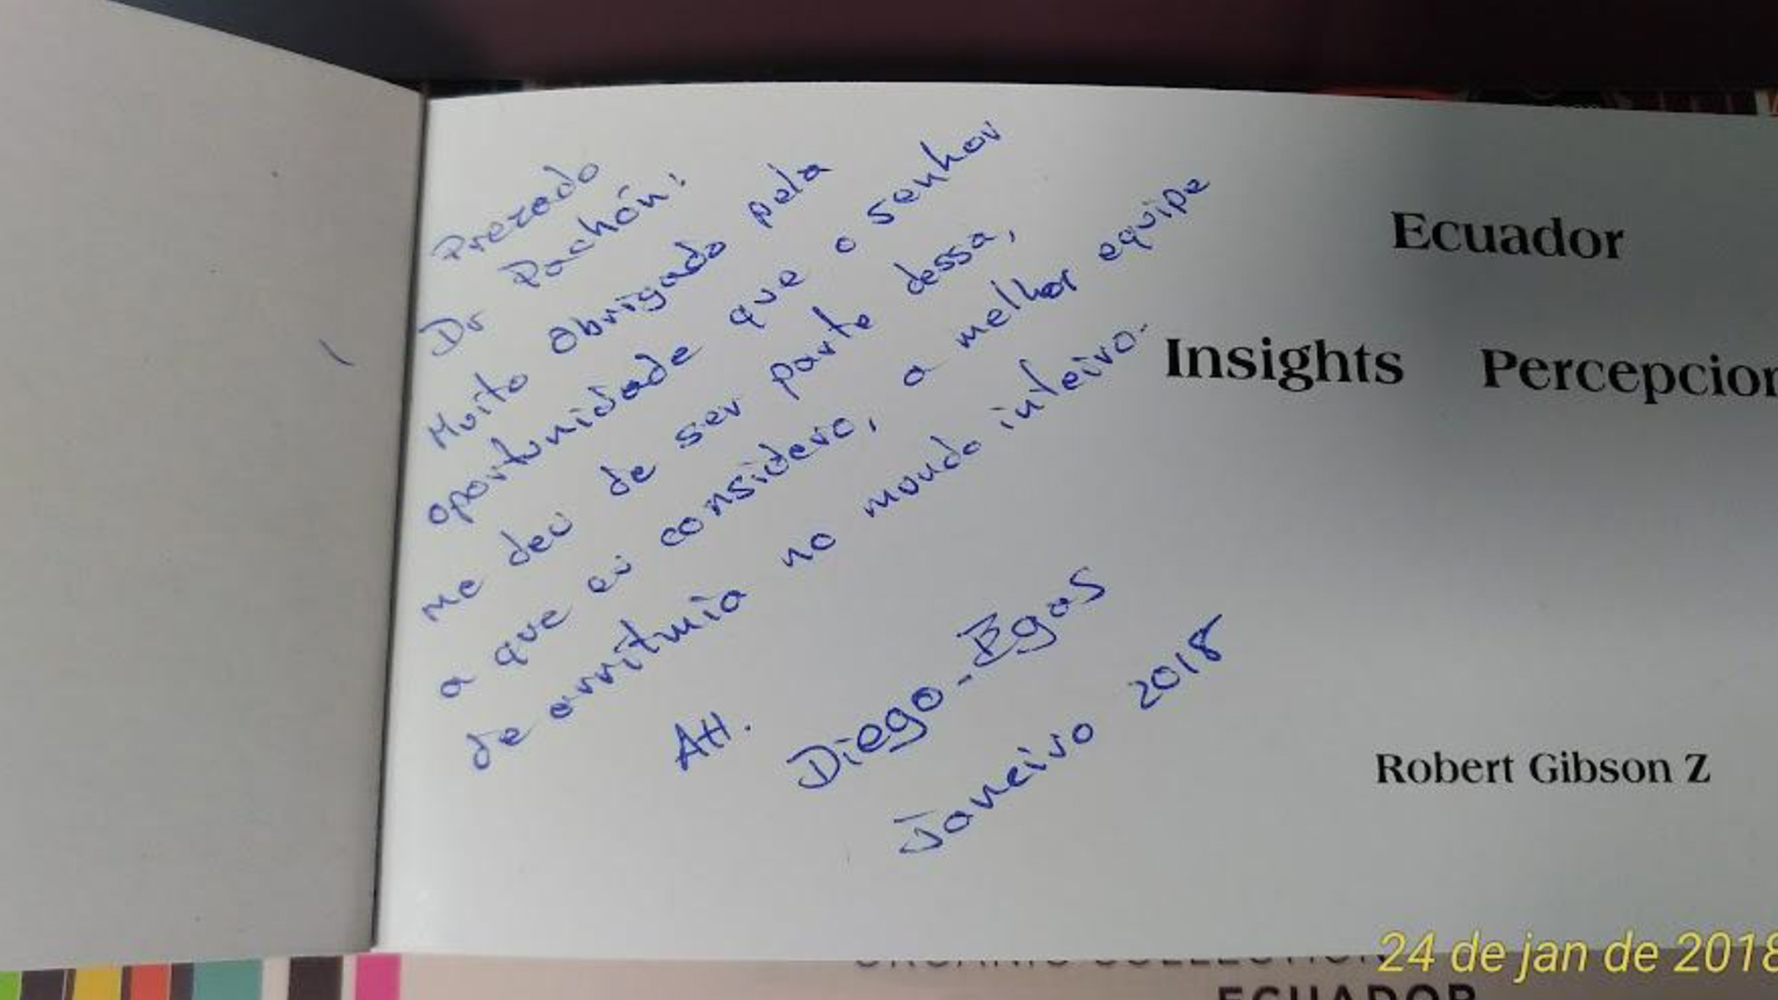 Prezado
Dr Pachón:
Muito obrigado pela
oportunidade que o senhor
me deu de ser parte dessa,
a que eu considero, a melhor equipe
de arritmia no mundo inteiro.
Att.
Diego Egas
Janeiro 2018
Ecuador
Insights Percepcion
Robert Gibson Z
24 de jan de 2018
ECUADOR